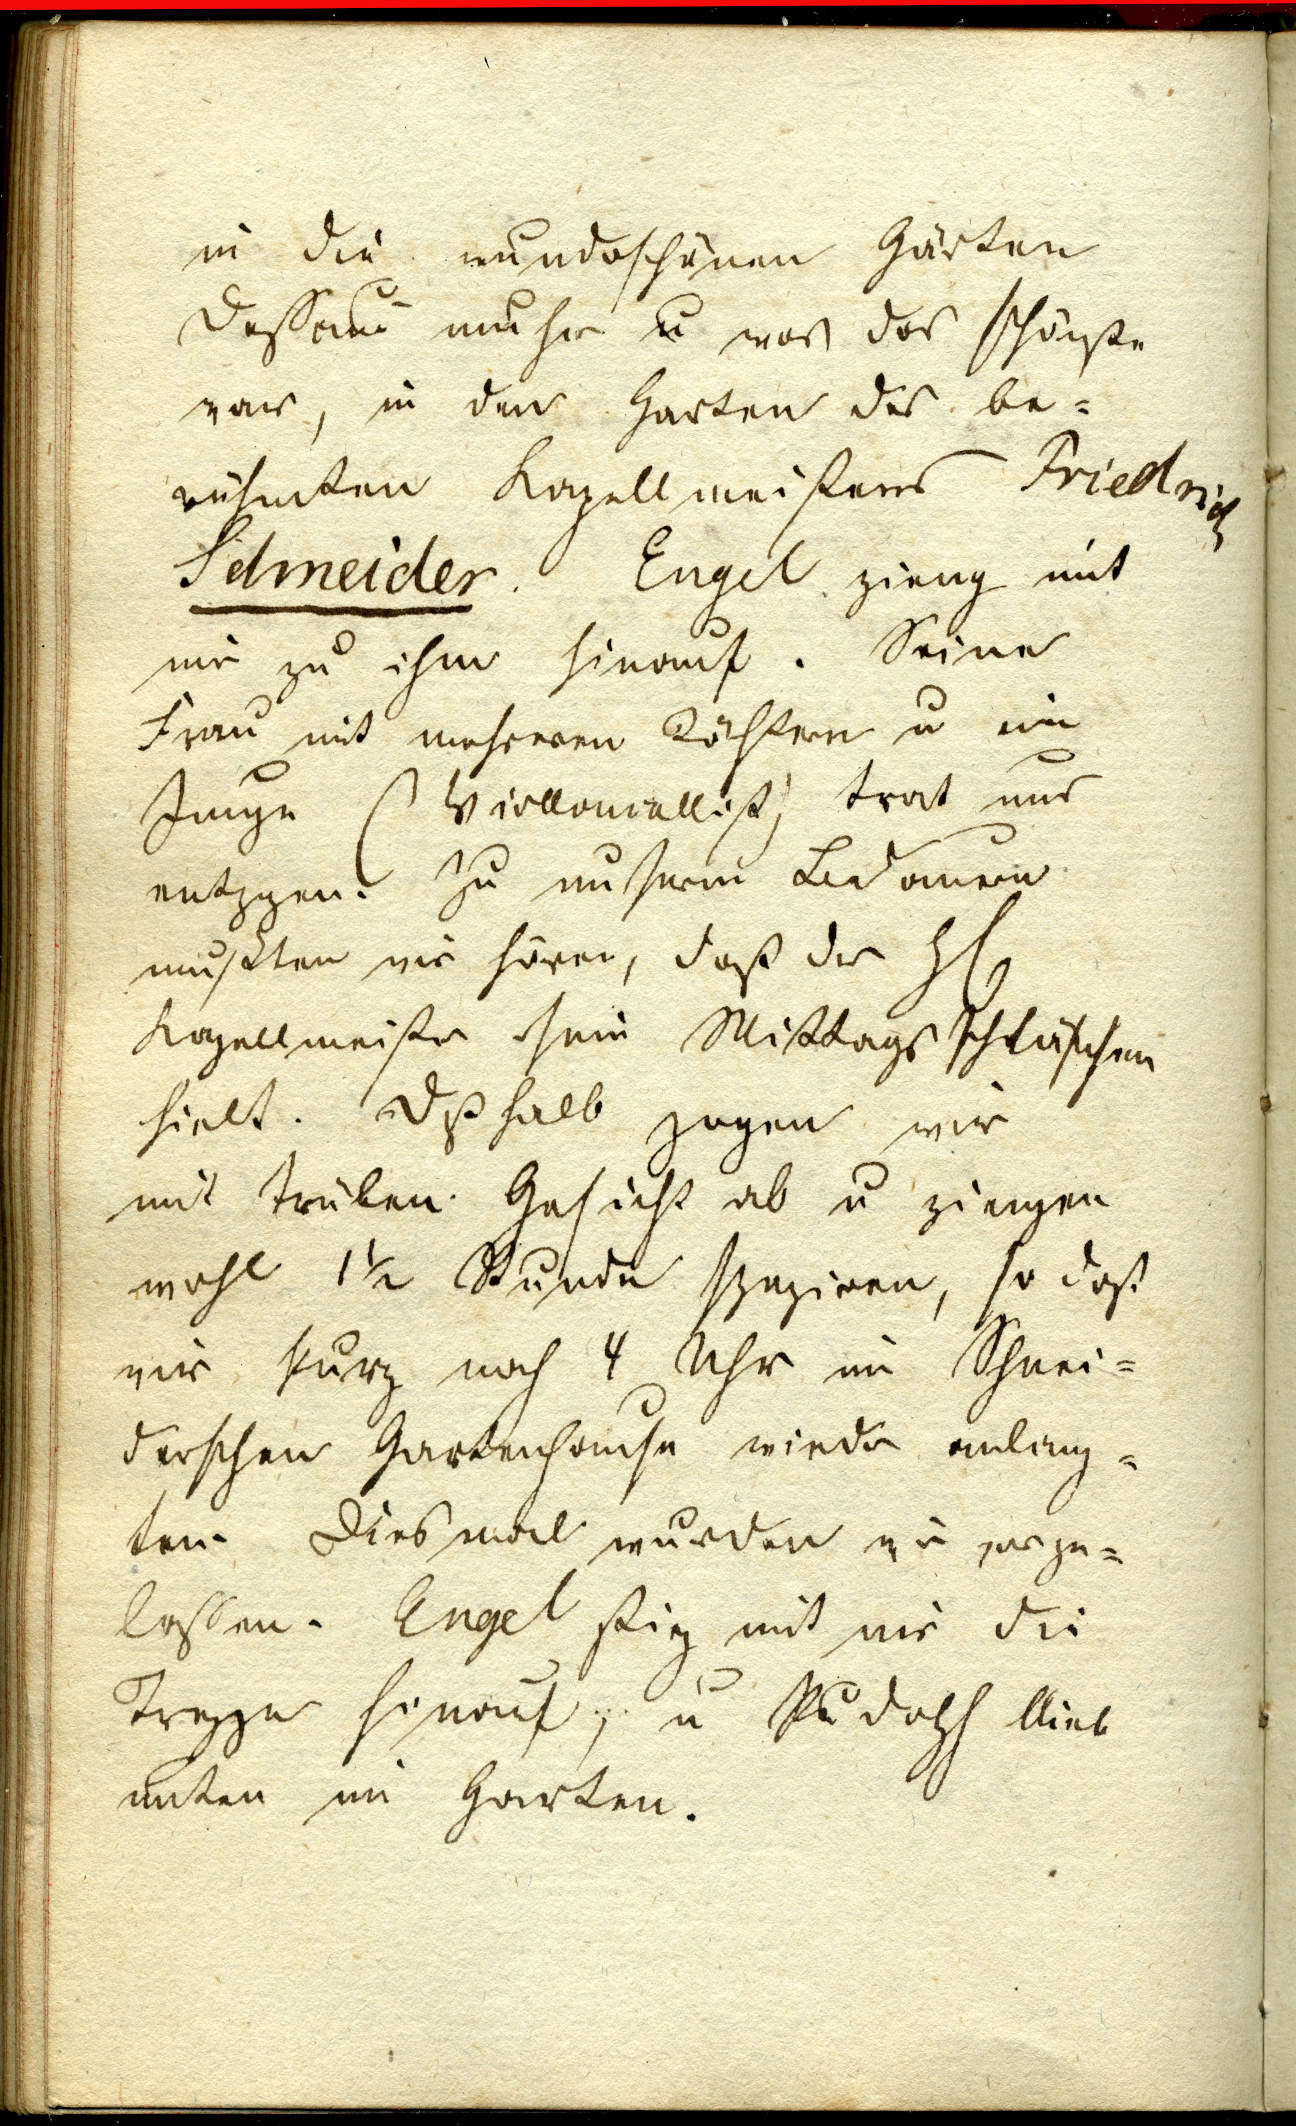 in die wunderschönen Gärten
Dessaus umher u was das schönste
war, in den Garten des be-
rühmten Kapellmeisters Friedrich
Schneider. Engel gieng mit
mir zu ihm hinauf. Seine
Frau mit mehreren Töchtern u ein
Junge (Violloncellist) trat uns
entgegen. Zu unserm Bedauern
mußten wir hören, daß der H
Kapellmeister sein Mittagsschläfchen
hielt. Deßhalb zogen wir
mit trüben Gesicht ab u giengen
wohl 1½ Stunde spaziren, so daß
wir kurz nach 4 Uhr im Schnei-
derschen Gartenhause wieder anlang-
ten. Diesmal wurden wir vorge-
lassen. Engel stieg mit mir die
Treppe hinauf, u Rudolph blieb
unten im Garten.